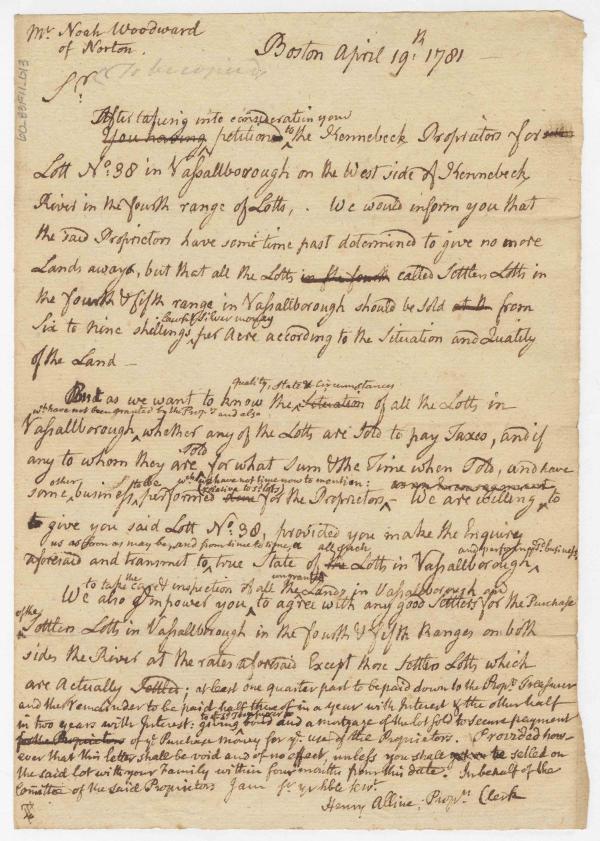 Mr. Noah Woodward
of Norton.
Boston April 19th 1781
To be copied
Sr.
After taking into consideration your
You having petitioned to the Kennebeck Proprietors for
Lott No. 38 in Vassallborough on the West side of Kennebeck
River in the fourth range of Lotts, . We would inform you that
the said Proprietors have some time past determined to give no more
Lands away, but that all the Lotts in the fourth called Settlers Lotts in
the fourth & fifth range in Vassallborough should be sold at th from
lawful Silver money
Six to nine shillings per Acre according to the Situation and Quality
of the Land —
quality, State & Circumstances
But as we want to know the Situation of all the Lotts in
wh have not been granted by the Proprs and also
Vassallborough, whether any of the Lotts are Sold to pay Taxes, and if
Sold
any to whom they are, for what Sum & the Time when Sold, and have
other to be wh we have not time now to mention:
some business performed relative to sd Lotts for the Proprietors - We are willing to
to give you said Lott No. 38, provided you make the Enquiry
us as soon as may be, and from time to time, a all such and perform sd. business
aforesaid and transmit to, true State of the Lotts in Vassallborough
to take the care & inspection of all the ungranted Lands in Vassallborough and
We also Impower you to agree with any good Settlers for the Purchase
of the
Settlers Lotts in Vassallborough in the fourth & fifth Ranges on both
sides the River at the rates aforesaid Except those Settlers Lotts which
are Actually Settled; at least one quarter part to be paid down to the Proprs Treasurer
and the Remainder to be paid half thereof in a year with Interest & the other half
to sd Treasurer
in two years with Interest: giving bond and a mortgage of the lot sold to secure payment
to the Proprietors of ye Purchase money for ye use of the Proprietors. Provided how
ever that this letter shall be void and of no effect, unless you shall be settled on
the said lot with your Family within four months from this date. In behalf of the
Committee of the said Proprietors I am Sr yr hble servt.
Henry Alline, Proprs Clerk